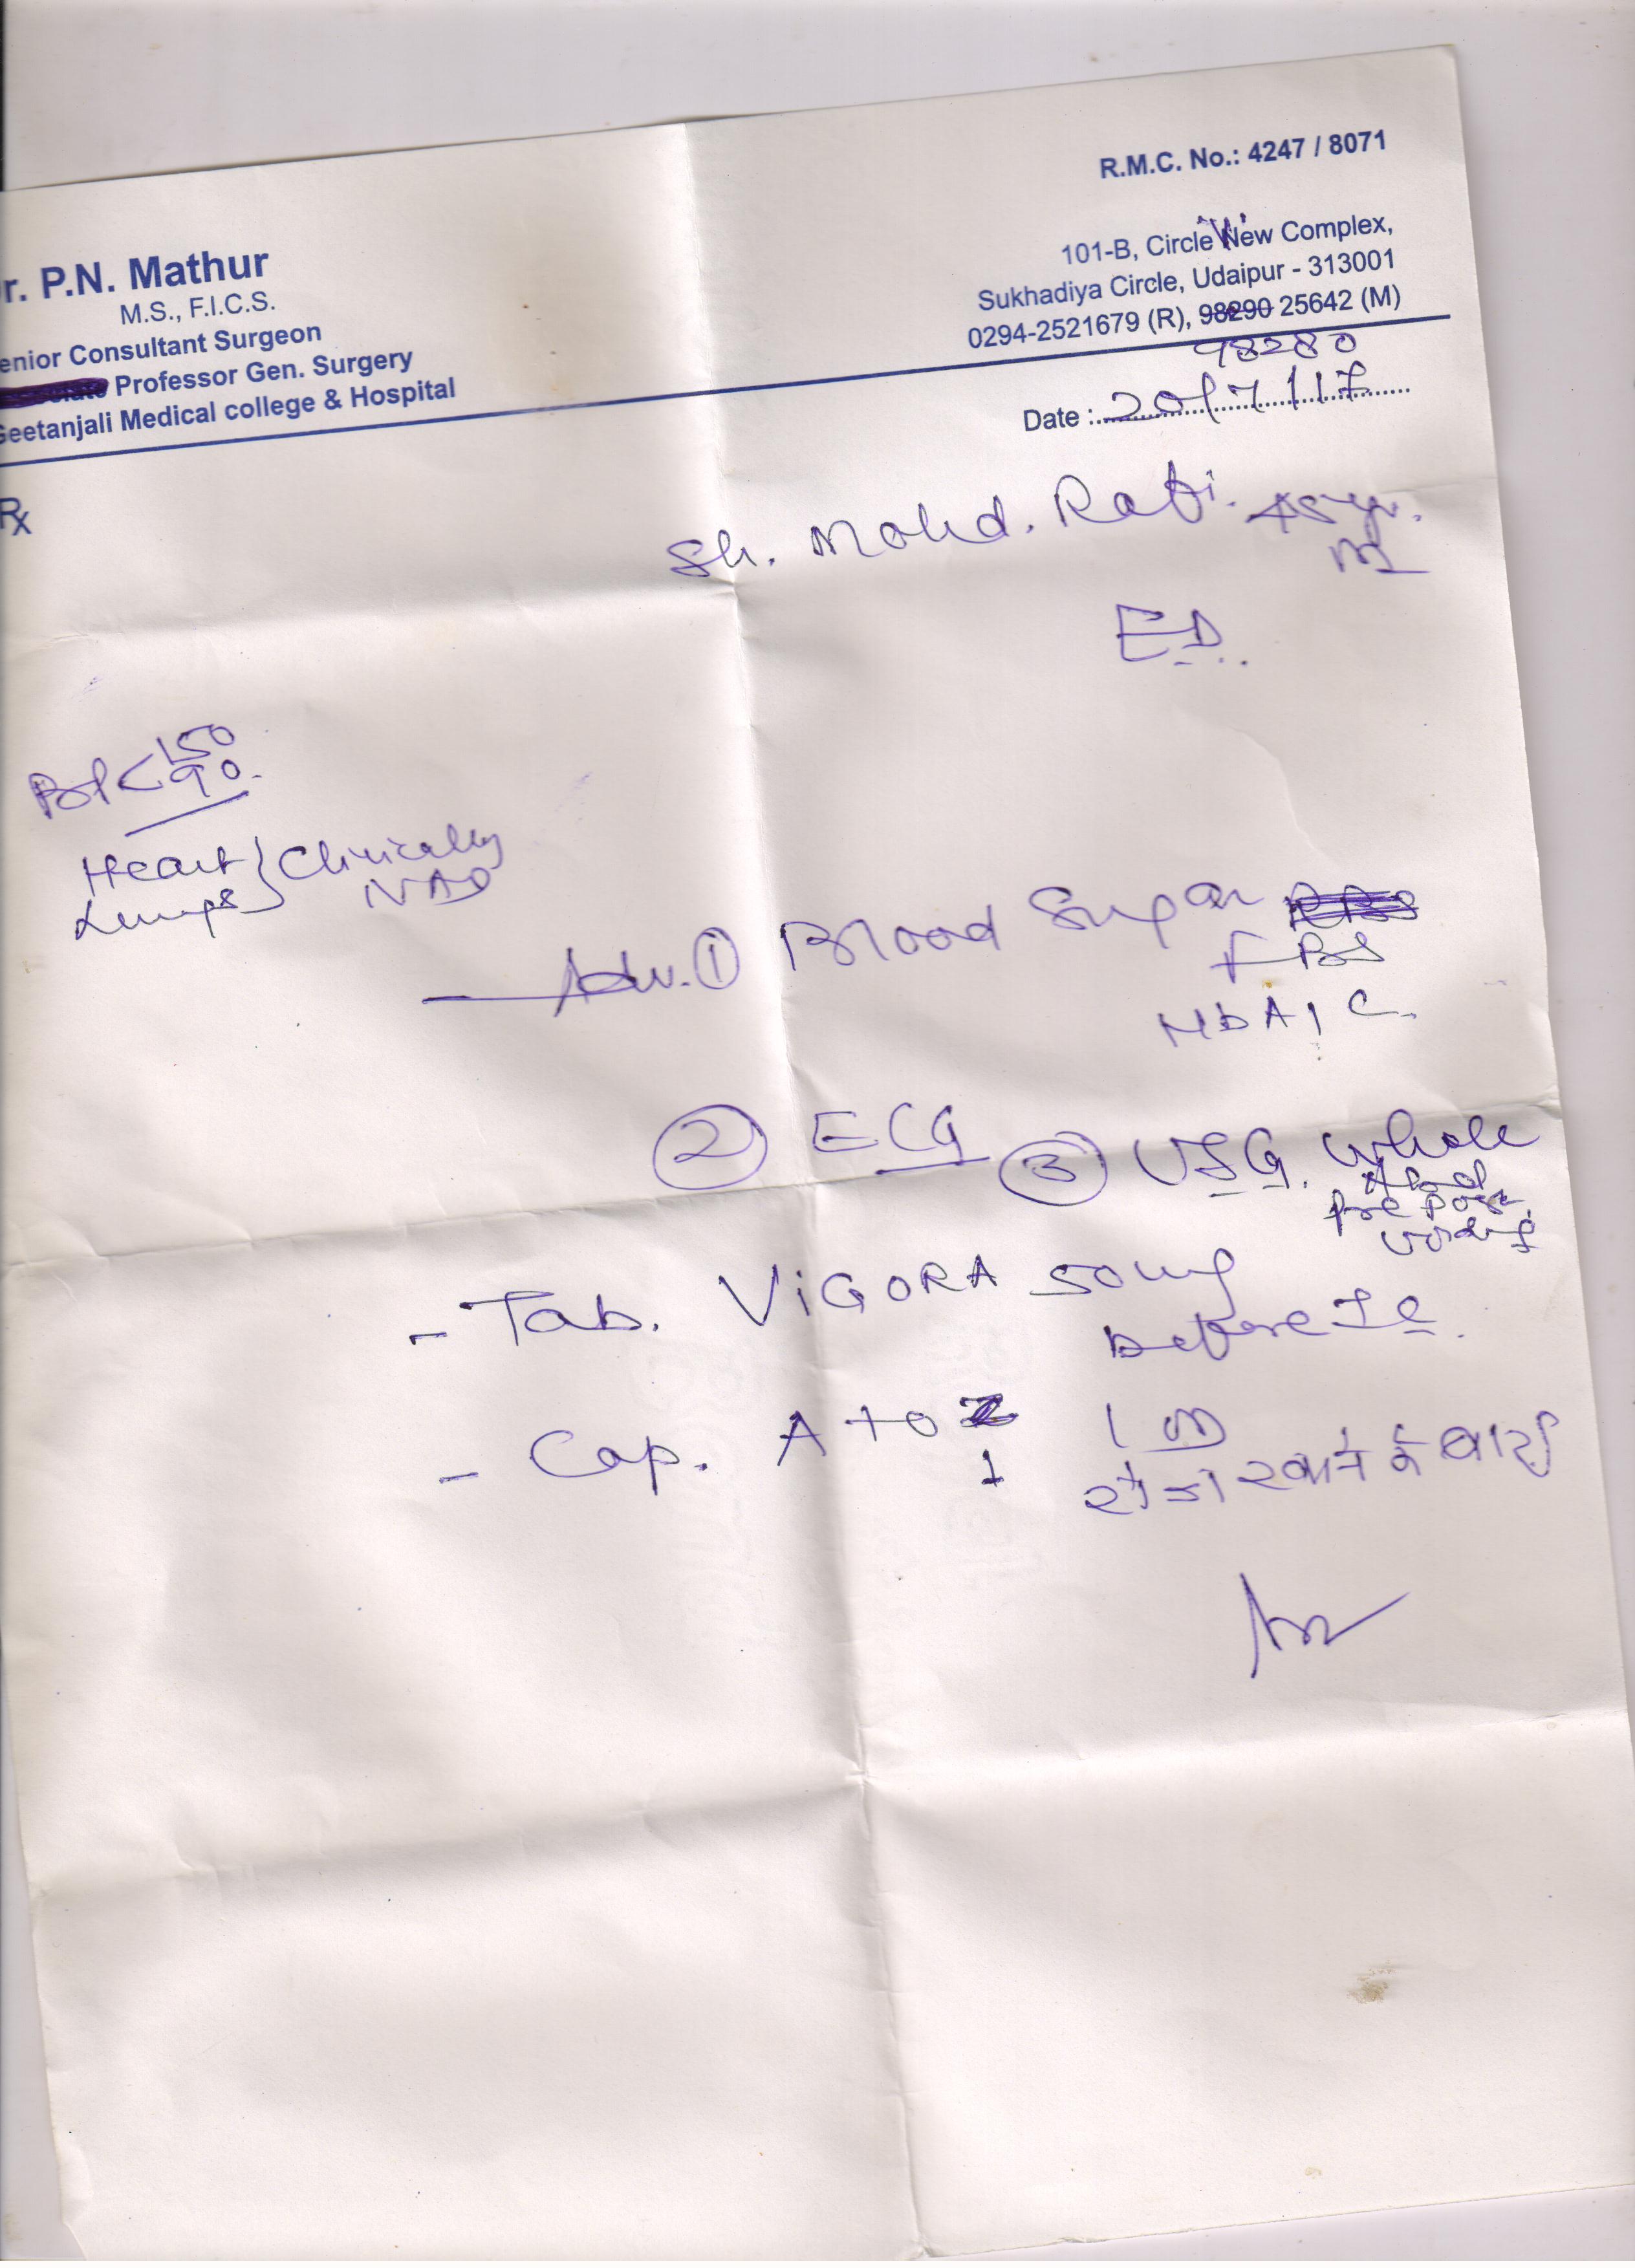 R.M.C. No.: 4247 / 8071
r. P.N. Mathur
M.S., F.I.C.S.
enior Consultant Surgeon
Professor Gen. Surgery
Geetanjali Medical college & Hospital
101-B, Circle View Complex,
Sukhadiya Circle, Udaipur - 313001
0294-2521679 (R), 98290 25642 (M)
98280
Date : 20/7/17
Rx
Sh. Mohd. Rafi. 45yr.
M
ED.
BP < 150
90.
Heart } Clinically
Lungs NAD
Adv. ① Blood Sugar RBS
FBS
HbA1C.
② ECG ③ USG. Whole
Abd
Pre Post
voiding
- Tab. ViGORA 50mg
before IC.
- Cap. A to Z 1 OD
1 रोज खाने के बाद